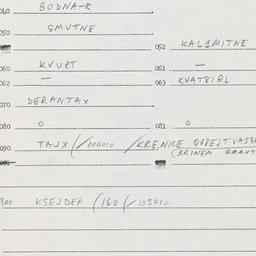 040 BODNA-R
050 SMUTNE
052 KALIMITNE
060 KVURT 061 —
062 — 063 KVAT8IRL
070 DERANTAX
080 0 081 0
090 TAJX (/004010 /KRE,NICE
(BRINEM
900 KSEJDER (160 (/103010